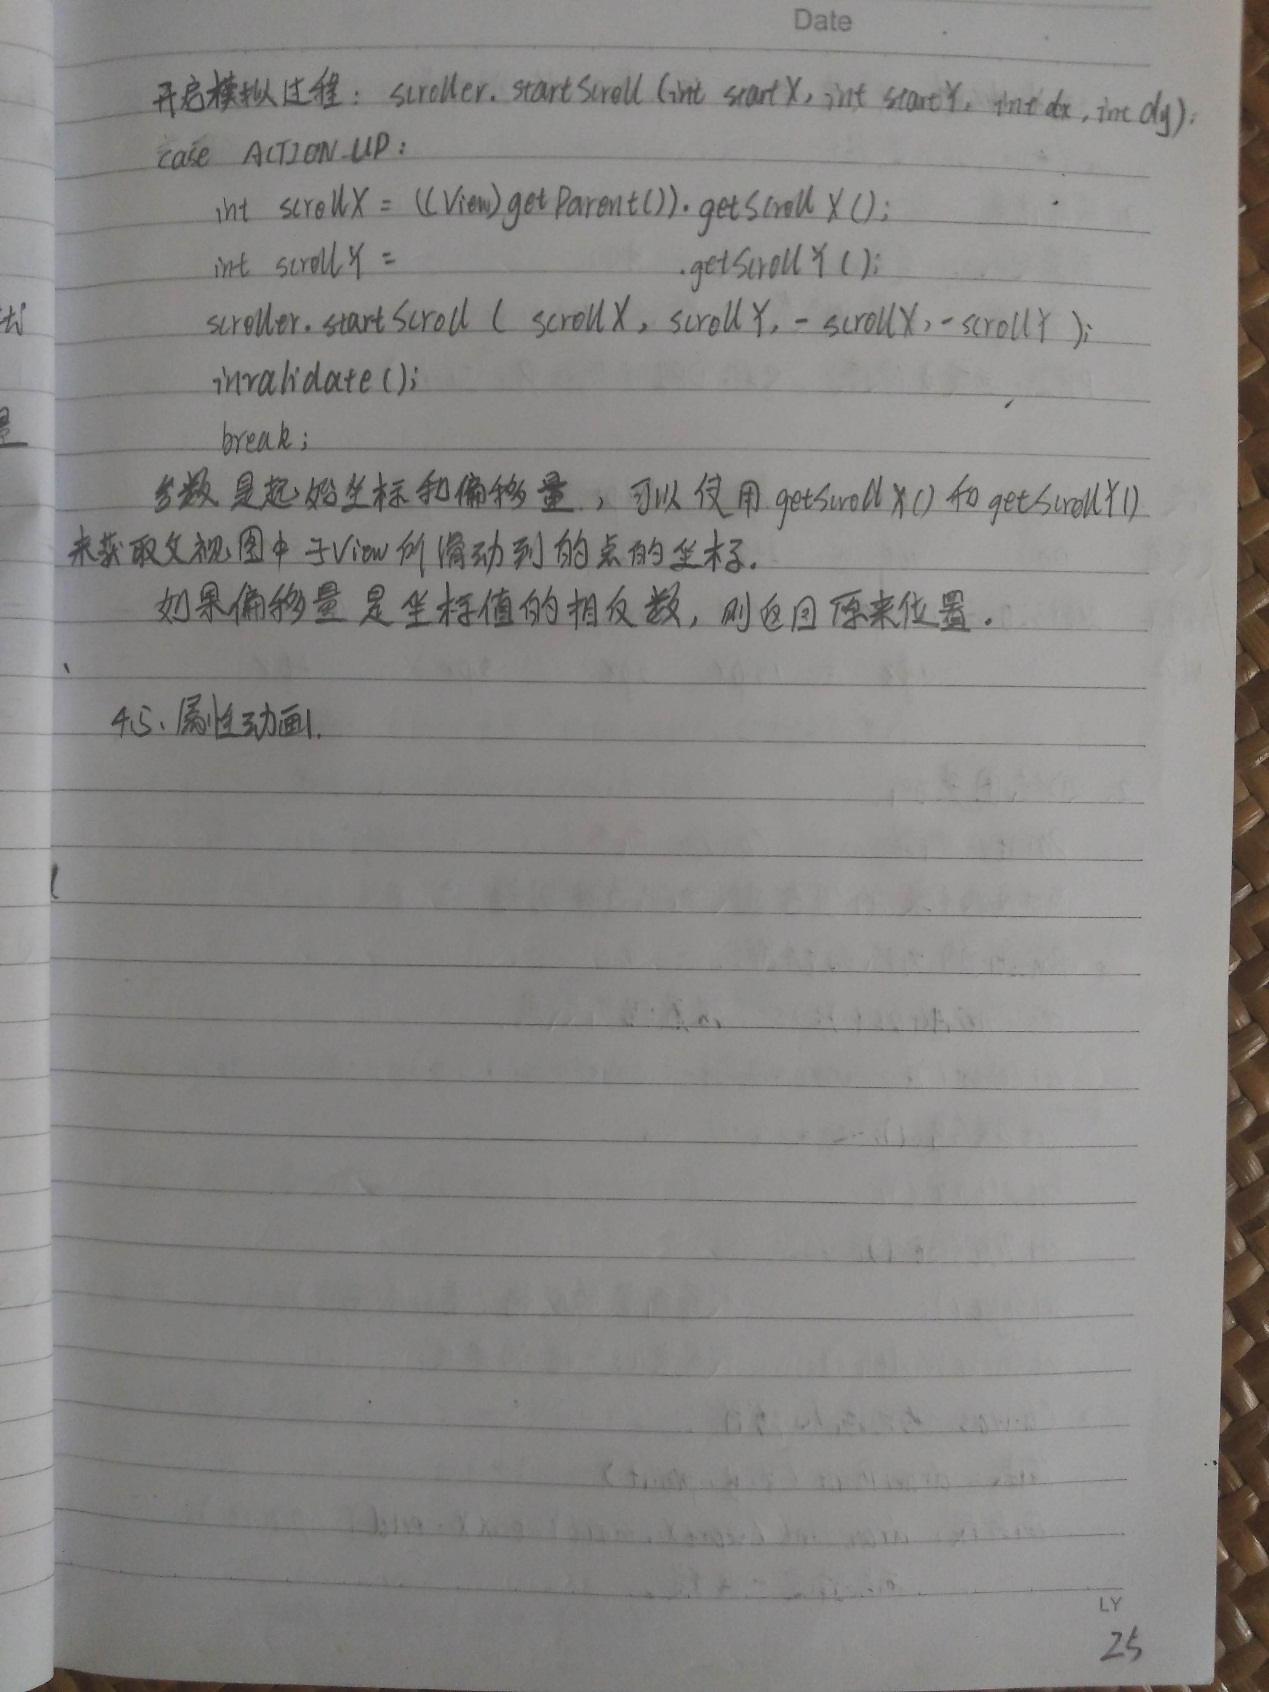 Date
开启模拟过程: scroller.startScroll(int startX, int startY, int dx, int dy);
case ACTION_UP:
int scrollX = ((View)getParent()).getScrollX();
int scrollY = .getScrollY();
scroller.startScroll( scrollX, scrollY, -scrollX, -scrollY );
invalidate();
break;
参数是起始坐标和偏移量, 可以使用getScrollX()和getScrollY()
来获取父视图中子View所滑动到的点的坐标.
如果偏移量是坐标值的相反数, 则返回原来位置.
量
4.5、属性动画.
LY
25